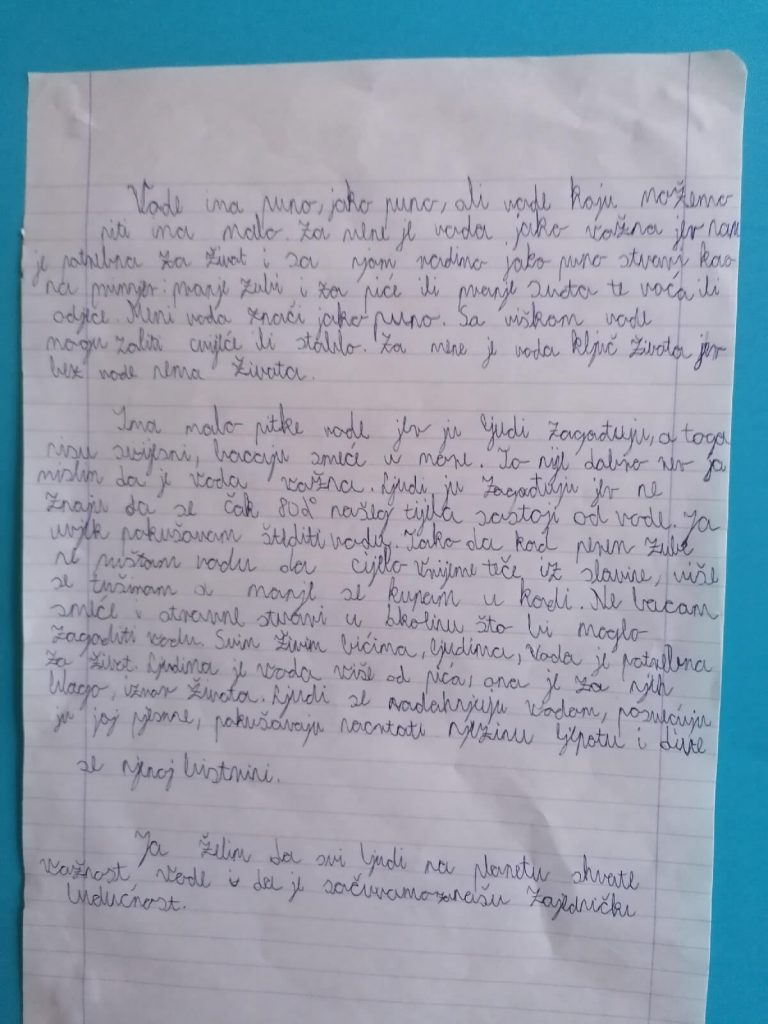 Vode ima puno, jako puno, ali vode koju možemo
piti ima malo. Za mene je voda jako važna jer nam
je potrebna za život i sa njom radimo jako puno stvari kao
na primjer: pranje zubi i za piće ili pranje suđa te voća ili
odjeće. Meni voda znači jako puno. Sa viškom vode
mogu zaliti cvijeće ili stablo. Za mene je voda ključ života jer
bez vode nema života.
Ima malo pitke vode jer ju ljudi zagađuju, a toga
nisu svijesni, bacaju smeće u more. To nije dobro jer ja
mislim da je voda važna. Ljudi ju zagađuju jer ne
znaju da se čak 80% našeg tijela sastoji od vode. Ja
uvjek pokušavam štediti vodu. Tako da kad perem zube
ne puštam vodu da cijelo vrijeme teče iz slavine, više
se tuširam a manje se kupam u kadi. Ne bacam
smeće i otrovne stvari u okolinu što bi moglo
zagaditi vodu. Svim živim bićima, ljudima, voda je potrebna
za život. Ljudima je voda više od pića, ona je za njih
blago, izvor života. Ljudi se nadahnjuju vodom, posvećuju
ju joj pjesme, pokušavaju nacrtati njezinu ljepotu i dive
se njenoj bistrini.
Ja želim da svi ljudi na planetu shvate
važnost vode i da je sačuvamo našu zajednički
budućnost.